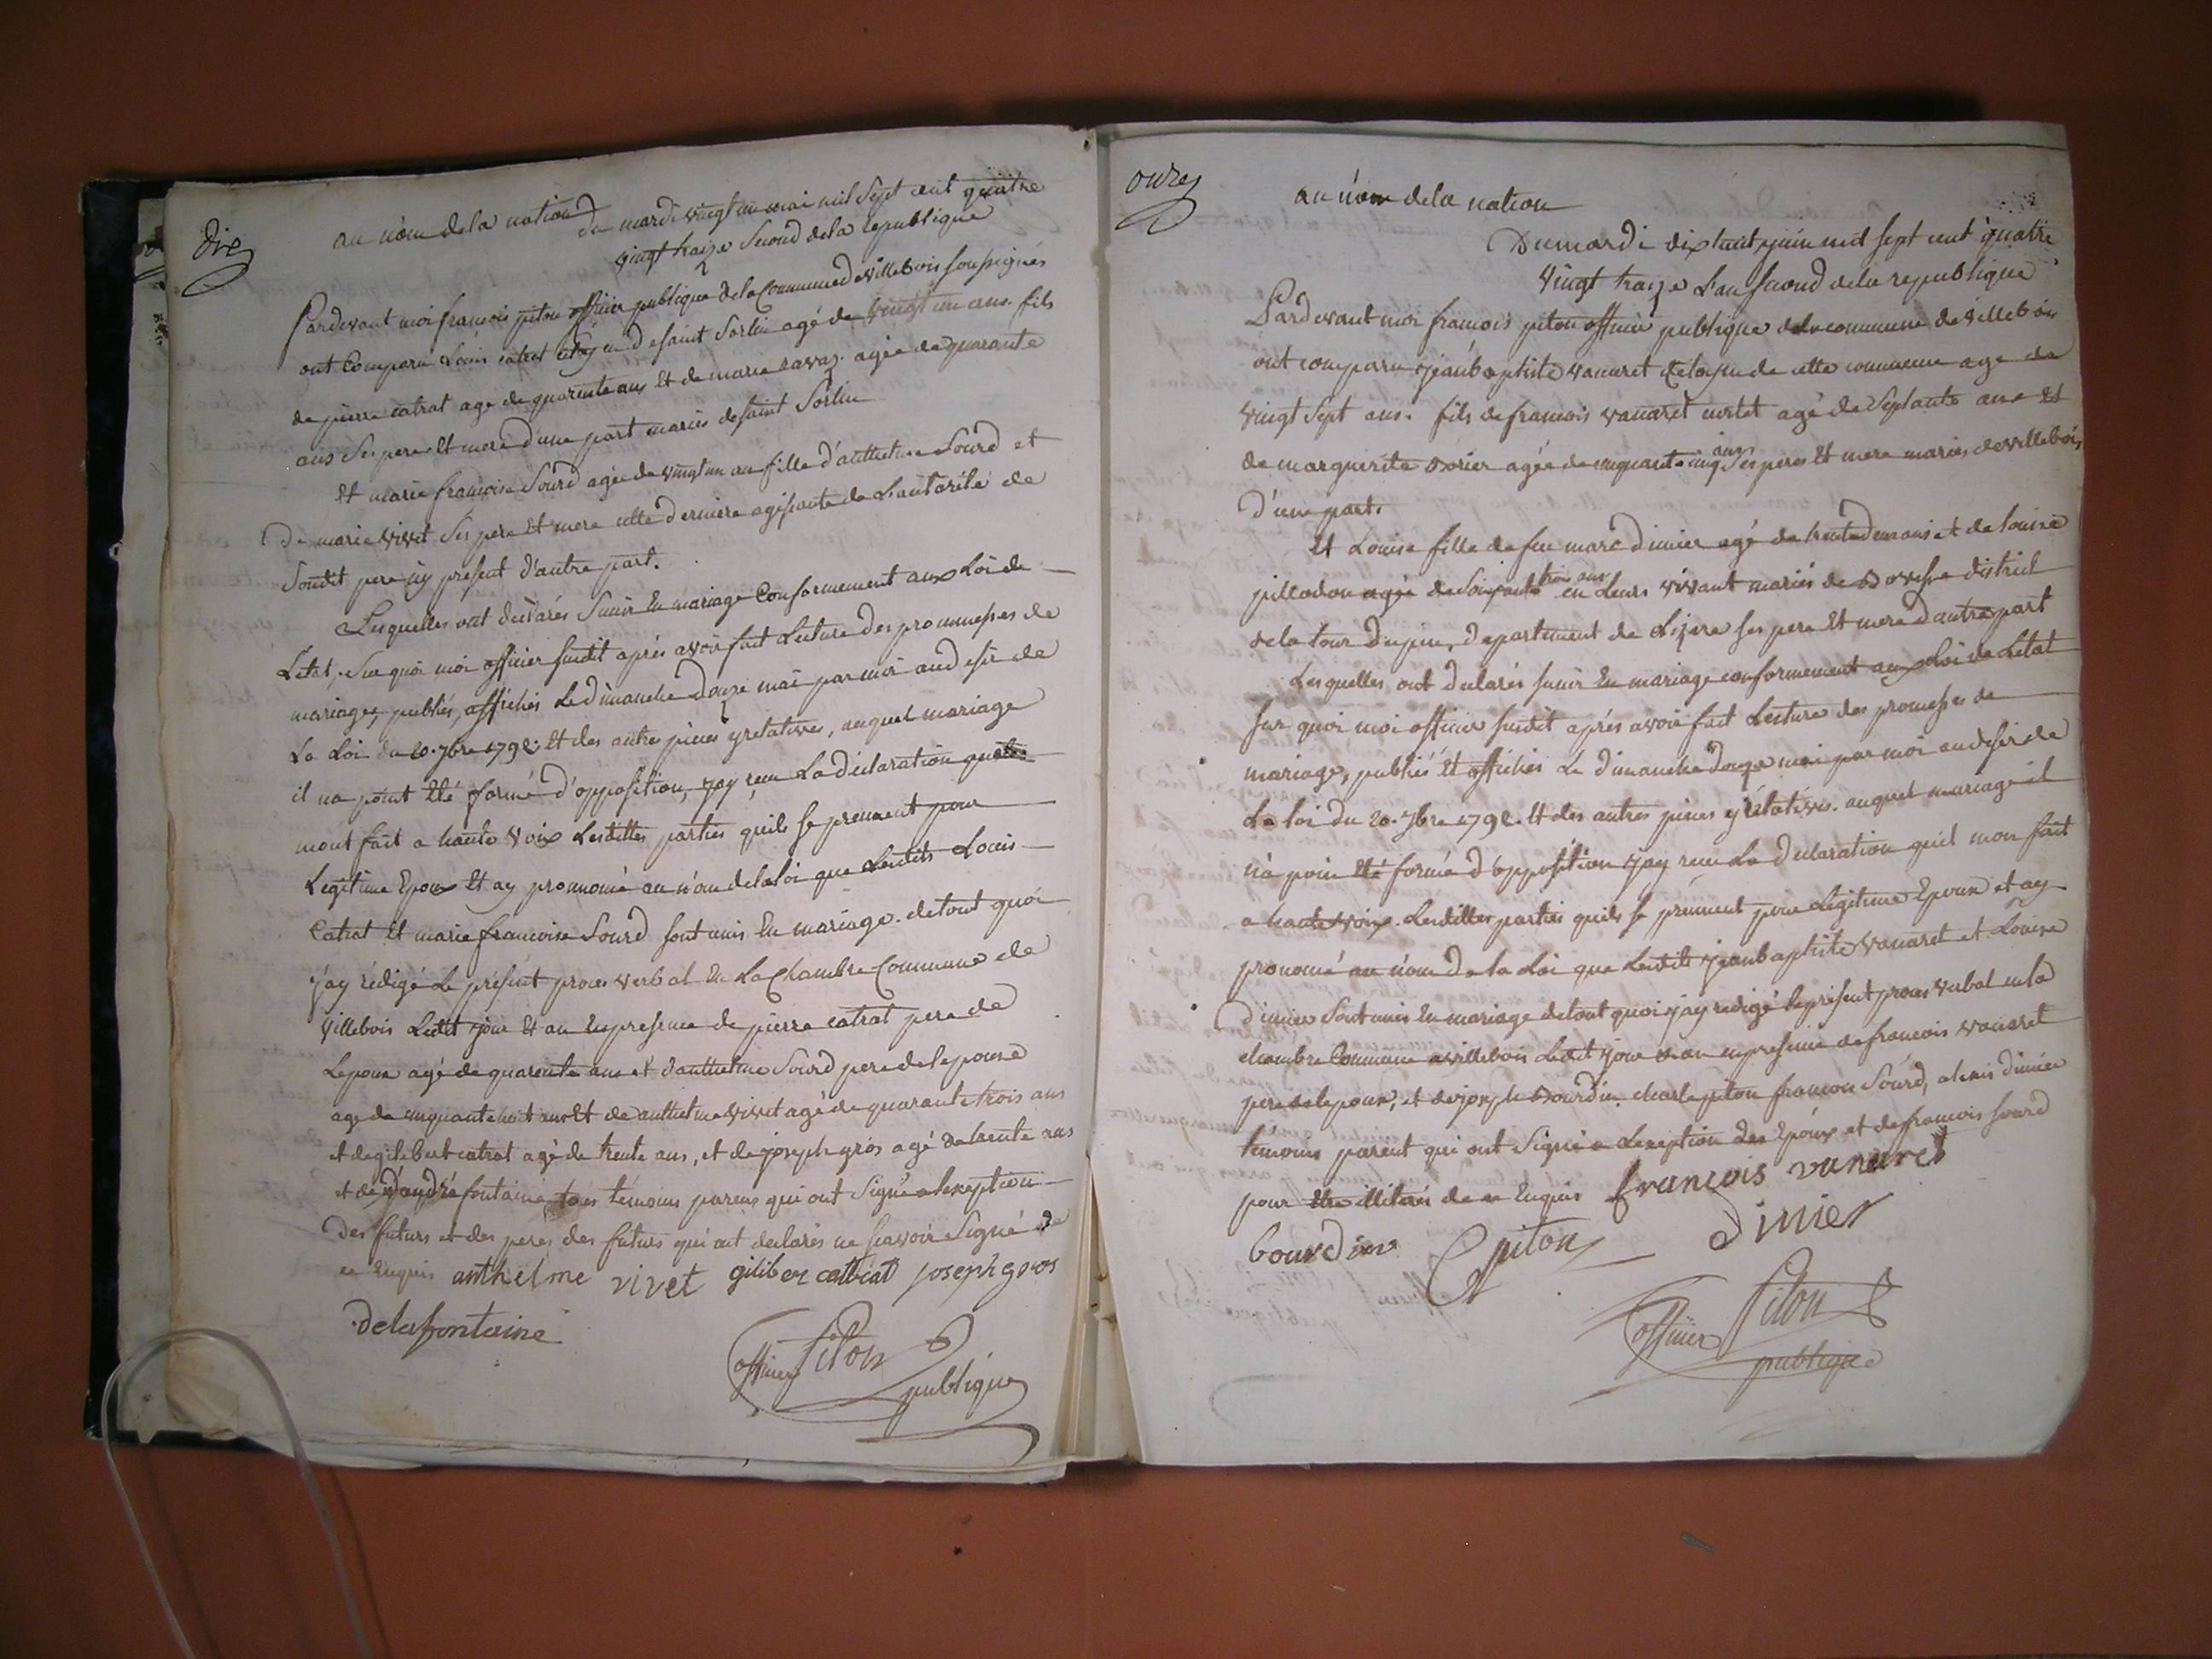 dix
au nom de la nation du mardi vingt un mai mil sept cent quatre
vingt traize second de la republique
Pardevant moi francois piton officier publique de la Commune de villebois soussignés
ont Comparu Louis catrat citoyen de saint Sorlin agé de vingt un ans fils
de pierre catrat age de quarente ans et de marie ravaz agée de quarante
ans Ses pere et mere d'une part mariés de saint Sorlin
Et marie francoise Sourd agée de vingt un an fille d'anthelme Sourd et
de marie vivet Ses pere et mere cette derniere agissante de L'autorité de
Soudit pere icy present d'autre part.
Lesquelles ont déclarés S'unir En mariage Conformement aux Loi de
L'etat, Sur quoi moi officier susdit aprés avoir fait Lecture des prommesses de
mariage, publiés, affichés Le dimanche douze mai par moi au desir de
La Loi du 20. 7bre 1792. et des autre pieces y relatives, auquel mariage
il na point Eté formé d'opposition, j'ay reçu La déclaration quils
mont fait a haute voix Lesdittes parties quils se prennent pour
Legitime Epoux Et ay prononcé au nom de la loi que Lesdits Louis
Catrat Et marie francoise Sourd sont unis En mariage. de tout quoi
j'ay rédigé Le présent proces verbal En La Chambre Commune de
villebois Ledit jour Et an En presence de pierre catrat pere de
L'epoux agé de quarente ans et d'anthelme Sourd pere de L'epouse
age de cinquante huit ans Et de anthelme vivet agé de quarante trois ans
et de gilebert catrat agé de trente ans, et de joseph gros agé de trente ans
et de d'andré fontaine, tous témoins parens qui ont Signé a L'exeption
des futurs et des perés des futurs qui ont declarés ne scavoir Signé de
ce Enquis anthelme vivet giliber catrat joseph gros
delafontaine
officier Piton publique
onze
au nom de la nation
Du mardi dix huit juin mil sept cent quatre
vingt traize L'an second de la republique
Pardevant moi françois piton officier publique de la commune de villebois
ont comparu jean baptiste vanaret citoyen de cette commune age de
vingt sept ans. fils de francois vanaret agé de septante ans et
de marguerite agée de cinquante cinq ans Ses peres Et mere mariés de villebois
d'une part.
Et Louise fille de feu marc dimier agé de trente deux ans et de louise
pillodon agée de soixante trois ans en Leurs vivant mariés de district
de la tour Dupin, departement de L'izere ses pere Et mere d'autre part
Lesquelles ont declarés sunir En mariage conformement aux Loi de L'etat
Sur quoi moi officier susdit aprés avoir fait Lecture des promesses de
mariage, publiés Et affichés Le dimanche douze mai par moi au desir de
La loi du 20. 7bre 1792. Et des autres pieces y rélatives. auquel mariage il
n'a poin Eté formé d'opposition j'ay recu La declaration quil mon fait
a haute voix. Lesdittes parties quils se prennent pour Légitime Epoux et ay
prononcé au nom de la Loi que Lesdits jean baptiste vanaret et Louise
dimier Sont unis En mariage de tout quoi j'ay redigé Le présent proces verbal en la
chambre Commune a villebois Ledit jour et an en presence de francois vanaret
pere de L'epoux, et de joseph Bourdin. charle piton francois Sourd, alexis dimier
témoins parent qui ont Signé a L'exeption des Epoux et de francois sourd
pour Etre illiterés de ce Enquis françois vanaret
bourdin Cpiton dimier
officier Piton
publique